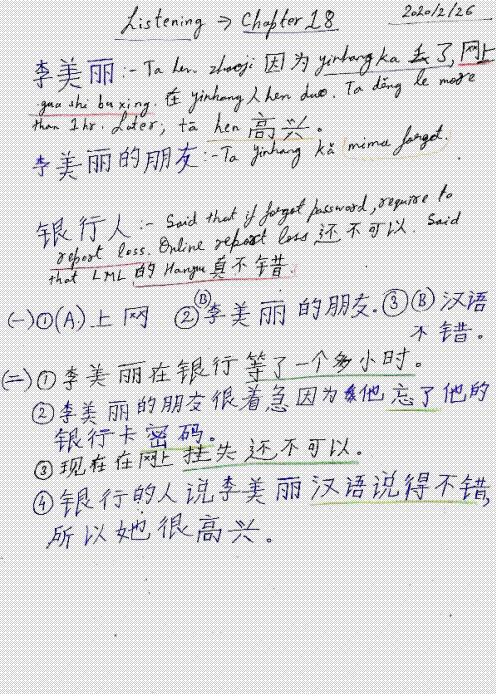 Listening → Chapter 18
2020/2/26
李美丽:- Ta hen zhaoji 因为 yinhang ka 丢了, 网上
gua shi bu xing. 在 yinhang 人 hen duo. Ta děng le more
than 1 hr. Later, ta hen 高兴。
李美丽的朋友:- Ta yinhang kǎ mima forgot.
银行人:- Said that if forgot password, require to
report loss. Online report loss 还不可以. Said
that LML 的 Hanyu 真不错.
(一) ①(A) 上网 ②(B) 李美丽的朋友. ③(B) 汉语
不错。
(二) ① 李美丽在银行等了一个多小时。
② 李美丽的朋友很着急因为他忘了他的
银行卡密码。
③ 现在在网上挂失还不可以.
④ 银行的人说李美丽汉语说得不错,
所以她很高兴。